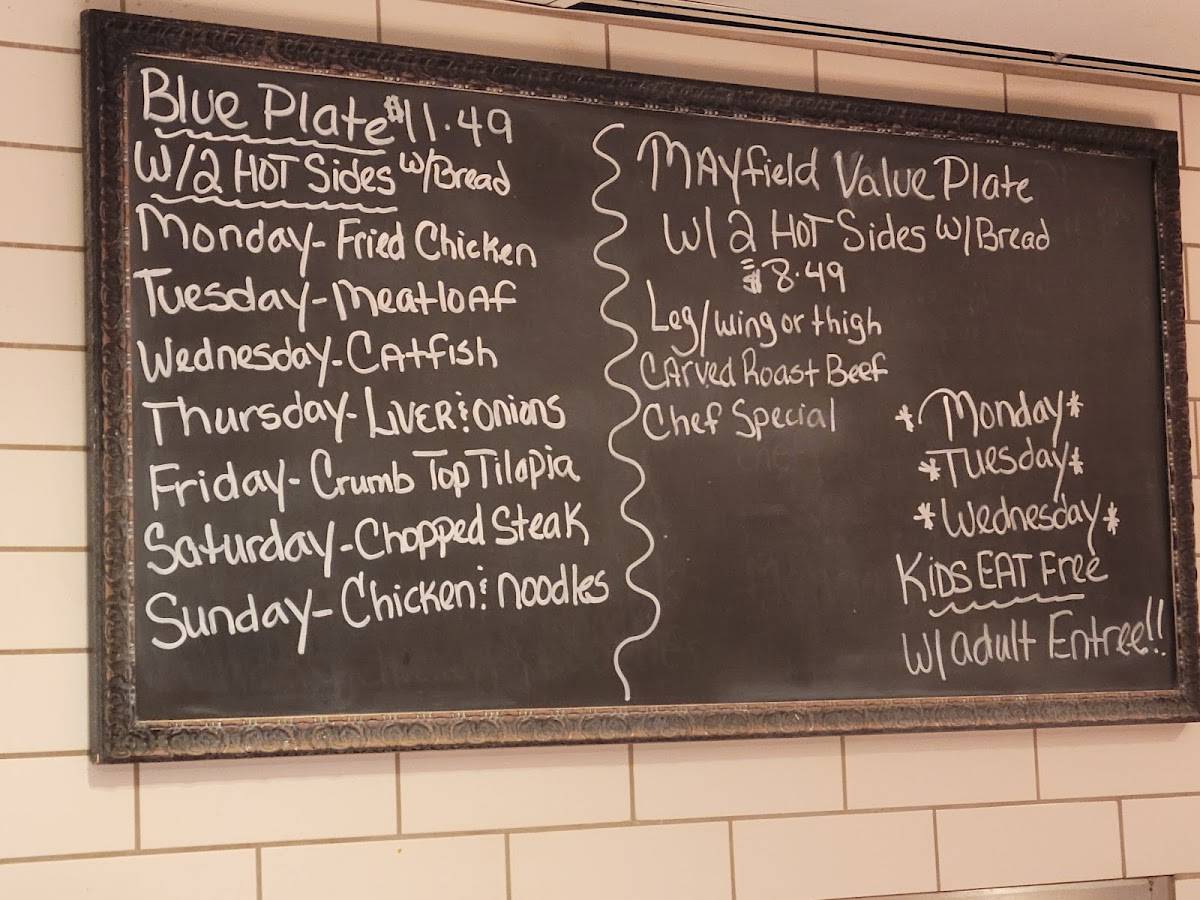 Blue Plate $11.49
W/2 HOT Sides W/Bread
Monday- Fried Chicken
Tuesday- Meatloaf
Wednesday- Catfish
Thursday- Liver & Onions
Friday- Crumb Top Tilapia
Saturday- Chopped Steak
Sunday- Chicken & Noodles
Mayfield Value Plate
W/2 HOT Sides W/Bread
$8.49
Leg/wing or thigh
Carved Roast Beef
Chef Special
*Monday*
*Tuesday*
*Wednesday*
Kids EAT Free
W/adult Entree!!